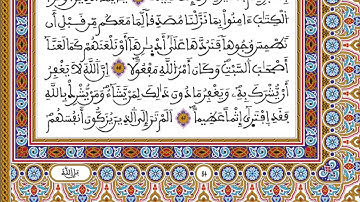 الكتاب ءامنوا بما نزلنا مصدقا لما معكم من قبل أن
نطمس وجوها فنردها على أدبارها أو نلعنهم كما لعنا
أصحاب السبت وكان أمر الله مفعولا إن الله لا يغفر
أن يشرك به ويغفر ما دون ذلك لمن يشاء ومن يشرك بالله
فقد افترى إثما عظيما ألم تر إلى الذين يزكون أنفسهم